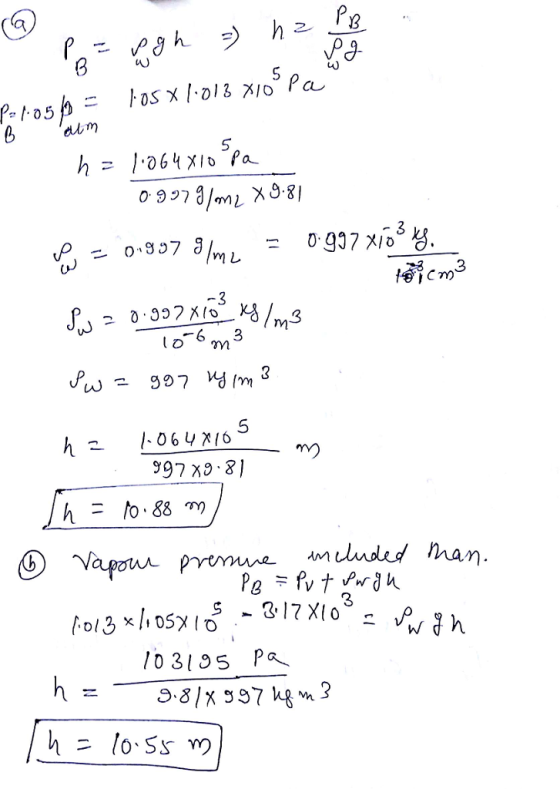 (a)
P_B = ρ_w g h ⇒ h = P_B / ρ_w g
P_B = 1.05 p_atm = 1.05 × 1.013 × 10^5 Pa
h = 1.064 × 10^5 Pa / 0.997 g/mL × 9.81
ρ_w = 0.997 g/mL = 0.997 × 10^-3 kg. / 1 cm^3
ρ_w = 0.997 × 10^-3 / 10^-6 m^3 kg/m3
ρ_w = 997 kg/m3
h = 1.064 × 10^5 / 997 × 9.81 m
h = 10.88 m
(b) Vapour pressure included than.
P_B = P_v + ρ_w g h
1.013 × 1.05 × 10^5 - 3.17 × 10^3 = ρ_w g h
h = 103195 Pa / 9.81 × 997 kg m3
h = 10.55 m